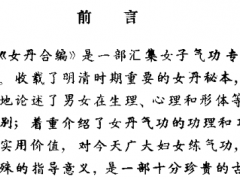 前 言
《女丹合编》是一部汇集女子气功专
。收载了明清时期重要的女丹秘本，
地论述了男女在生理、心理和形体等
别；着重介绍了女丹气功的功理和功
实用价值，对今天广大妇女练气功，
殊的指导意义，是一部十分珍贵的古